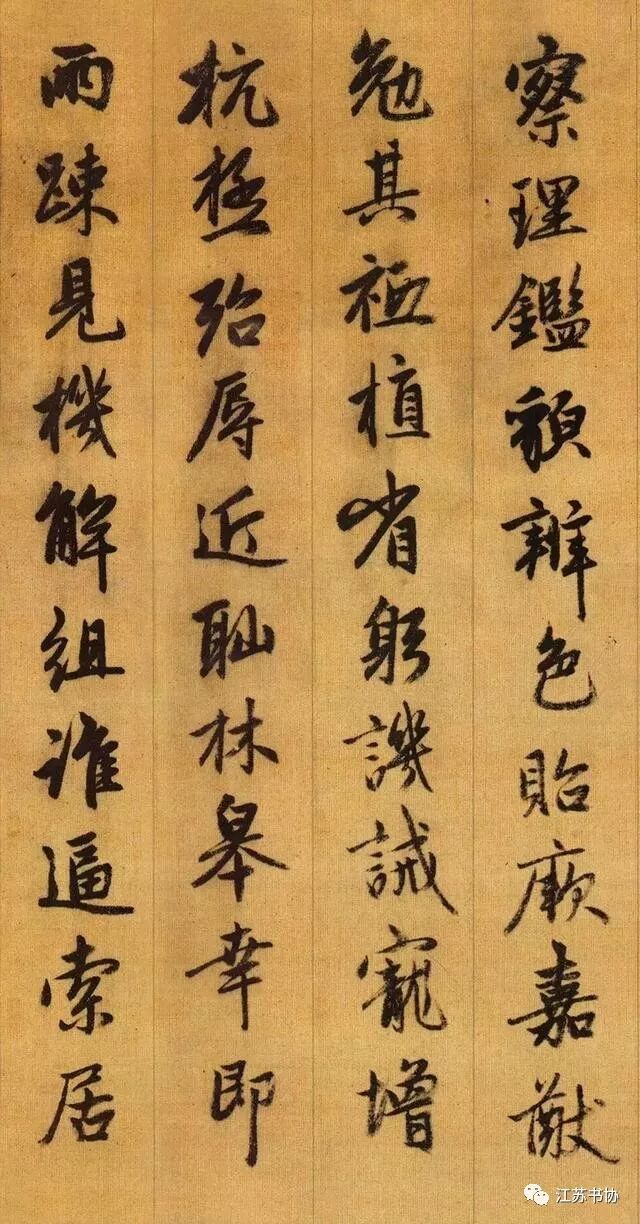 察理鑑貌辨色貽厥嘉猷
勉其祗植省躬譏誡寵增
抗極殆辱近恥林皋幸即
兩疎見機解組誰逼索居
江苏书协